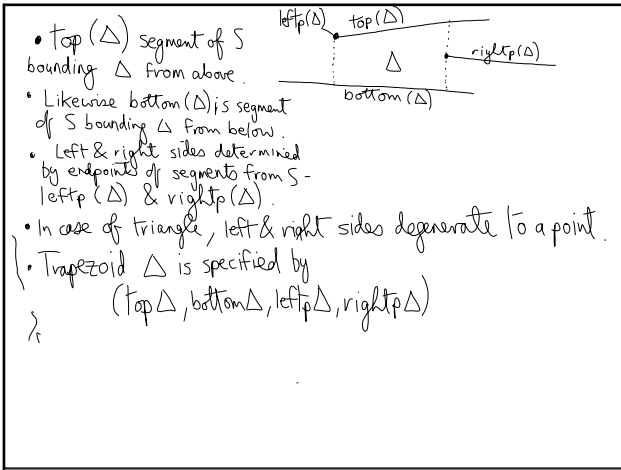 • top (Δ) segment of S
bounding Δ from above.
• Likewise bottom (Δ) is segment
of S bounding Δ from below.
• Left & right sides determined
by endpoints of segments from S -
leftp (Δ) & rightp (Δ).
• In case of triangle, left & right sides degenerate to a point.
• Trapezoid Δ is specified by
(top Δ, bottom Δ, leftp Δ, rightp Δ)
leftp(Δ) top(Δ)
Δ
rightp(Δ)
bottom (Δ)